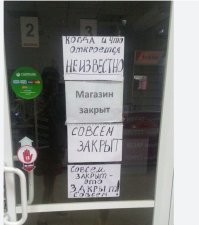 2
КОГДА И ЧТО
ОТКРОЕТСЯ
НЕИЗВЕСТНО
Магазин
закрыт
СОВСЕМ
ЗАКРЫТ
СОВСЕМ
ЗАКРЫТ-
ЭТО
ЗАКРЫТ
СОВСЕМ